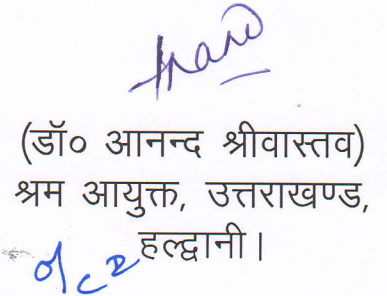 Anand
(डॉ० आनन्द श्रीवास्तव)
श्रम आयुक्त, उत्तराखण्ड,
हल्द्वानी।